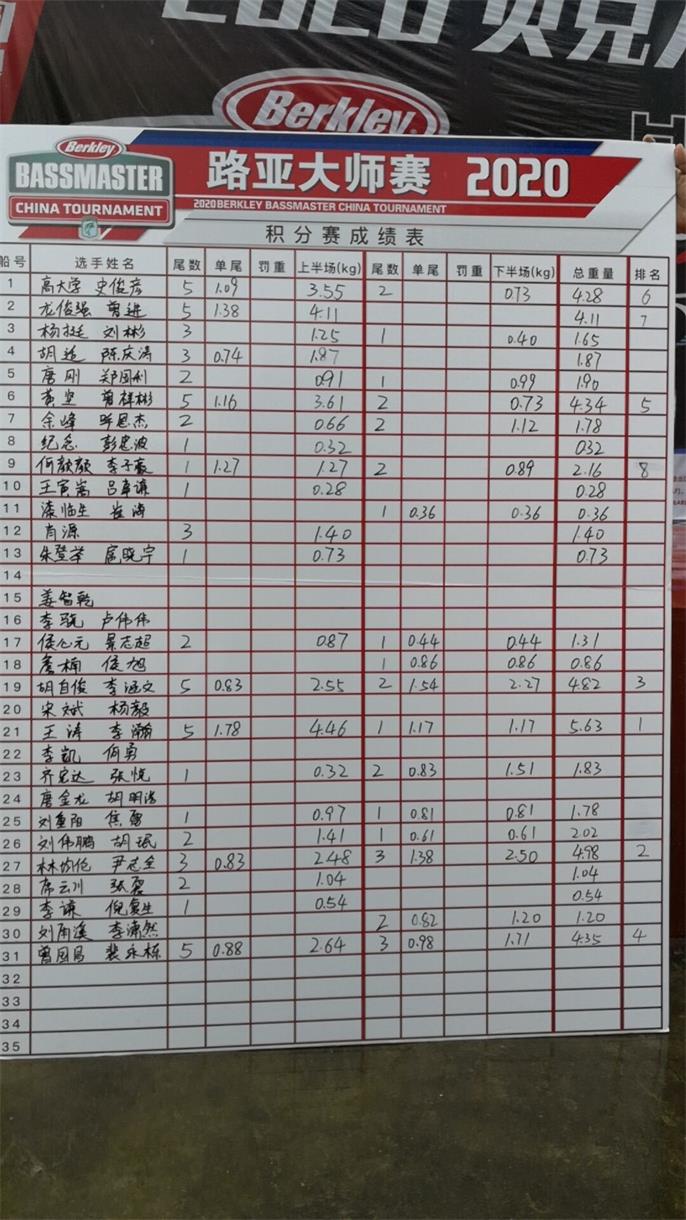 2020 贝克
Berkley
Berkley
BASSMASTER
CHINA TOURNAMENT
路亚大师赛 2020
2020 BERKLEY BASSMASTER CHINA TOURNAMENT
积分赛成绩表
船号 选手姓名 尾数 单尾 罚重 上半场(kg) 尾数 单尾 罚重 下半场(kg) 总重量 排名
1 高大学 史俊彦 5 1.09 3.55 2 0.73 4.28 6
2 龙俊强 曾进 5 1.38 4.11 4.11 7
3 杨挺 刘彬 3 1.25 1 0.40 1.65
4 胡 陈庆涛 3 0.74 1.87 1.87
5 唐刚 郑国利 2 0.91 1 0.99 1.90
6 黄 曾祥彬 5 1.16 3.61 2 0.73 4.34 5
7 余峰 思杰 2 0.66 2 1.12 1.78
8 纪念 彭忠波 1 0.32 0.32
9 何颜颜 李子豪 1 1.27 1.27 2 0.89 2.16 8
10 王寅嵩 吕章谦 1 0.28 0.28
11 漆临生 崔涛 1 0.36 0.36 0.36
12 肖源 3 1.40 1.40
13 朱登举 扈晓宇 1 0.73 0.73
14
15 姜智乾
16 李骁 卢伟伟
17 侯心元 景志超 2 0.87 1 0.44 0.44 1.31
18 詹楠 侯旭 1 0.86 0.86 0.86
19 胡自俊 李涵文 5 0.83 2.55 2 1.54 2.27 4.82 3
20 宋斌 杨毅
21 王涛 李瀚 5 1.78 4.46 1 1.17 1.17 5.63 1
22 李凯 何勇
23 齐宏达 张悦 1 0.32 2 0.83 1.51 1.83
24 唐金龙 胡明浩
25 刘重阳 焦磊 1 0.97 1 0.81 0.81 1.78
26 刘伟鹏 胡珉 2 1.41 1 0.61 0.61 2.02
27 林伯伦 尹志全 3 0.83 2.48 3 1.38 2.50 4.98 2
28 席云川 张磊 2 1.04 1.04
29 李谦 倪复生 1 0.54 0.54
30 刘雨溪 李潇然 2 0.82 1.20 1.20
31 曾国昌 裴永栋 5 0.88 2.64 3 0.98 1.71 4.35 4
32
33
34
35